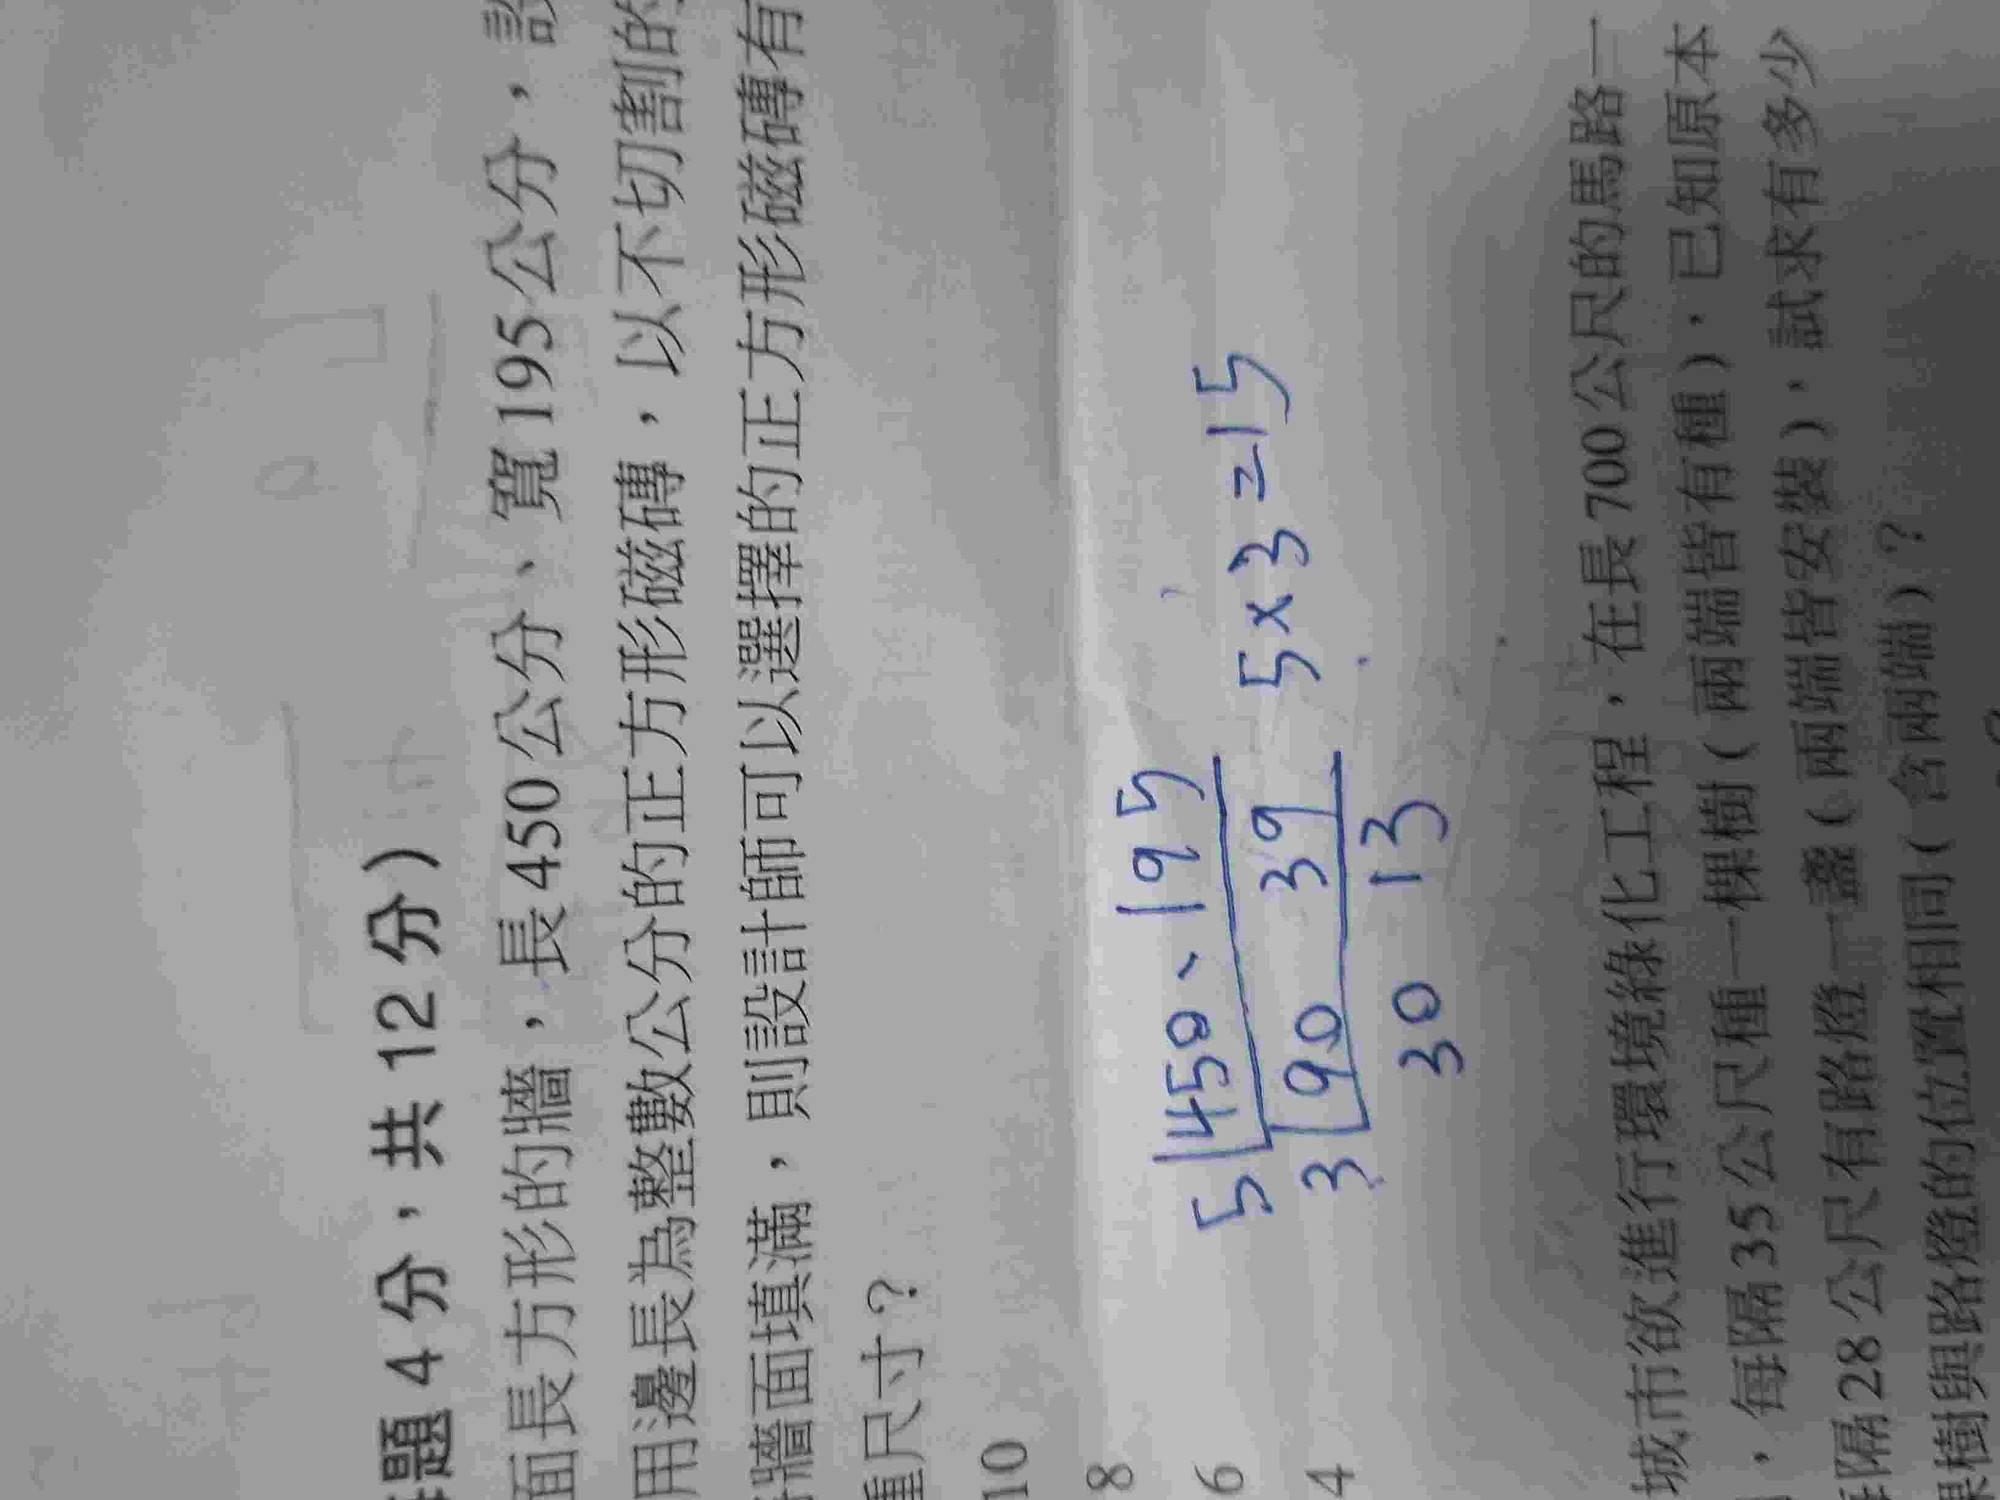 題 4 分，共 12 分）
面長方形的牆，長 450 公分、寬 195 公分，設
用邊長為整數公分的正方形磁磚，以不切割的
牆面填滿，則設計師可以選擇的正方形磁磚有
種尺寸？
10
8
6
4
5 450、195
3 90 39 5×3=15
30 13
城市欲進行環境綠化工程，在長 700 公尺的馬路一
，每隔 35 公尺種一棵樹（兩端皆有種），已知原本
隔 28 公尺有路燈一盞（兩端皆安裝），試求有多少
棵樹與路燈的位置相同（含兩端）？